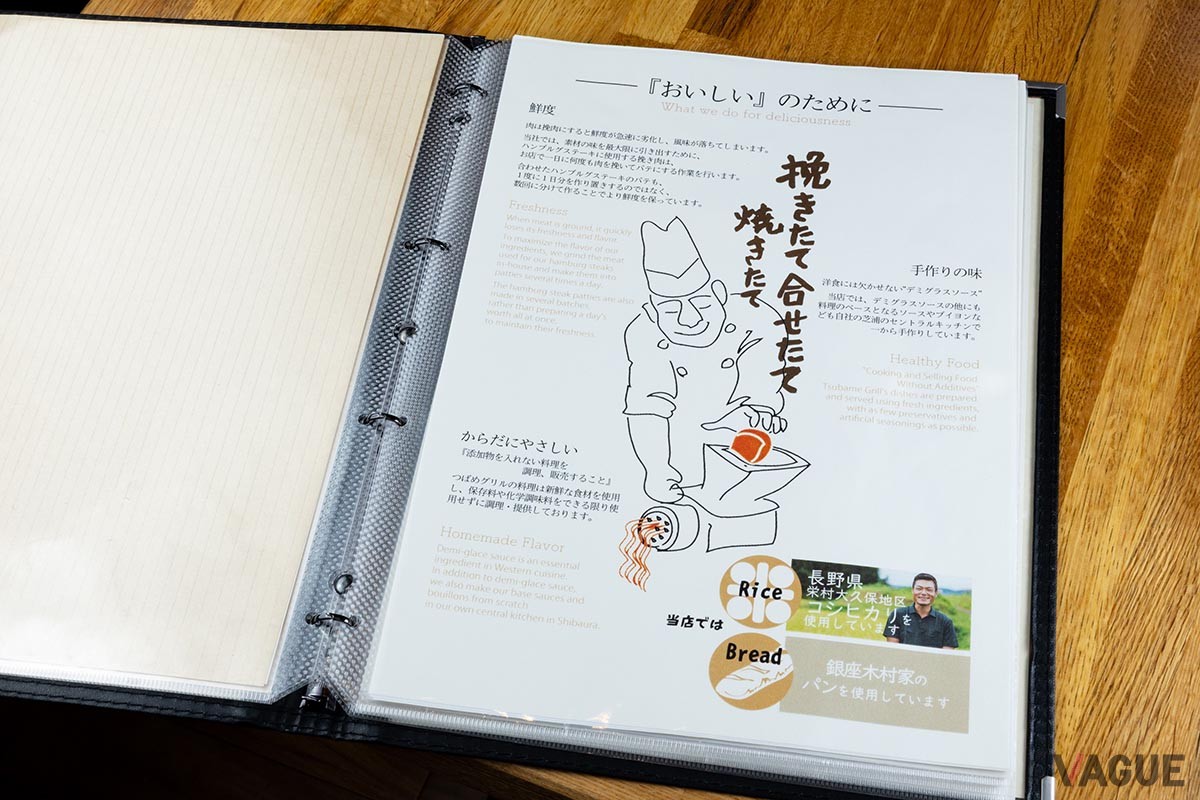 『おいしい』のために
What we do for deliciousness
鮮度
肉は挽肉にすると鮮度が急速に劣化し、風味が落ちてしまいます。
当社では、素材の味を最大限に引き出すために、
ハンブルグステーキに使用する挽き肉は、
お店で一日に何度も肉を挽いてパテにする作業を行います。
合わせたハンブルグステーキのパテも、
1度に1日分を作り置きするのではなく、
数回に分けて作ることでより鮮度を保っています。
Freshness
When meat is ground, it quickly
loses its freshness and flavor.
To maximize the flavor of our
ingredients, we grind the meat
used for our hamburg steaks
in-house and make them into
patties several times a day.
The hamburg steak patties are also
made in several batches,
rather than preparing a day's
worth all at once,
to maintain their freshness.
挽きたて合せたて
焼きたて
手作りの味
洋食には欠かせない“デミグラスソース”
当店では、デミグラスソースの他にも
料理のベースとなるソースやブイヨンな
ども自社の芝浦のセントラルキッチンで
一から手作りしています。
Healthy Food
"Cooking and Selling Food
Without Additives"
Tsubame Grill's dishes are prepared
and served using fresh ingredients,
with as few preservatives and
artificial seasonings as possible.
からだにやさしい
『添加物を入れない料理を
調理、販売すること』
つばめグリルの料理は新鮮な食材を使用
し、保存料や化学調味料をできる限り使
用せずに調理・提供しております。
Homemade Flavor
Demi-glace sauce is an essential
ingredient in Western cuisine.
In addition to demi-glace sauce,
we also make our base sauces and
bouillons from scratch
in our own central kitchen in Shibaura.
当店では
Rice
長野県
栄村大久保地区
コシヒカリを
使用しています
Bread
銀座木村家の
パンを使用しています
VAGUE